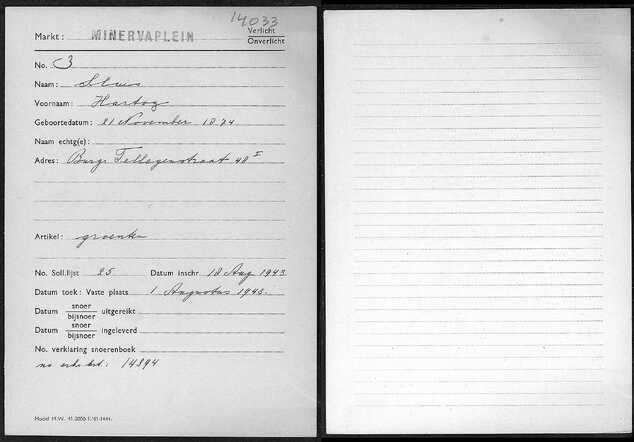 14033
Markt: MINERVAPLEIN Verlicht
Onverlicht
No. 3
Naam: Sluis
Voornaam: Hartog
Geboortedatum: 21 November 1874
Naam echtg(e):
Adres: Burg. Tellegenstraat 48 I
Artikel: groenten
No. Soll.lijst 25 Datum inschr. 18 Aug 1943
Datum toek: Vaste plaats 1 Augustus 1943.
Datum snoer
bijsnoer uitgereikt
Datum snoer
bijsnoer ingeleverd
No. verklaring snoerenboek
no erk. krt: 14394
Model M.W.